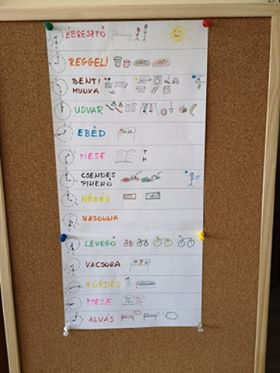 ÉBRESZTŐ
REGGELI
BENTI
MUNKA
UDVAR
EBÉD
MESE
CSENDES
PIHENŐ
UZSONNA
LEVEGŐ
VACSORA
FÜRDÉS
MESE
ALVÁS